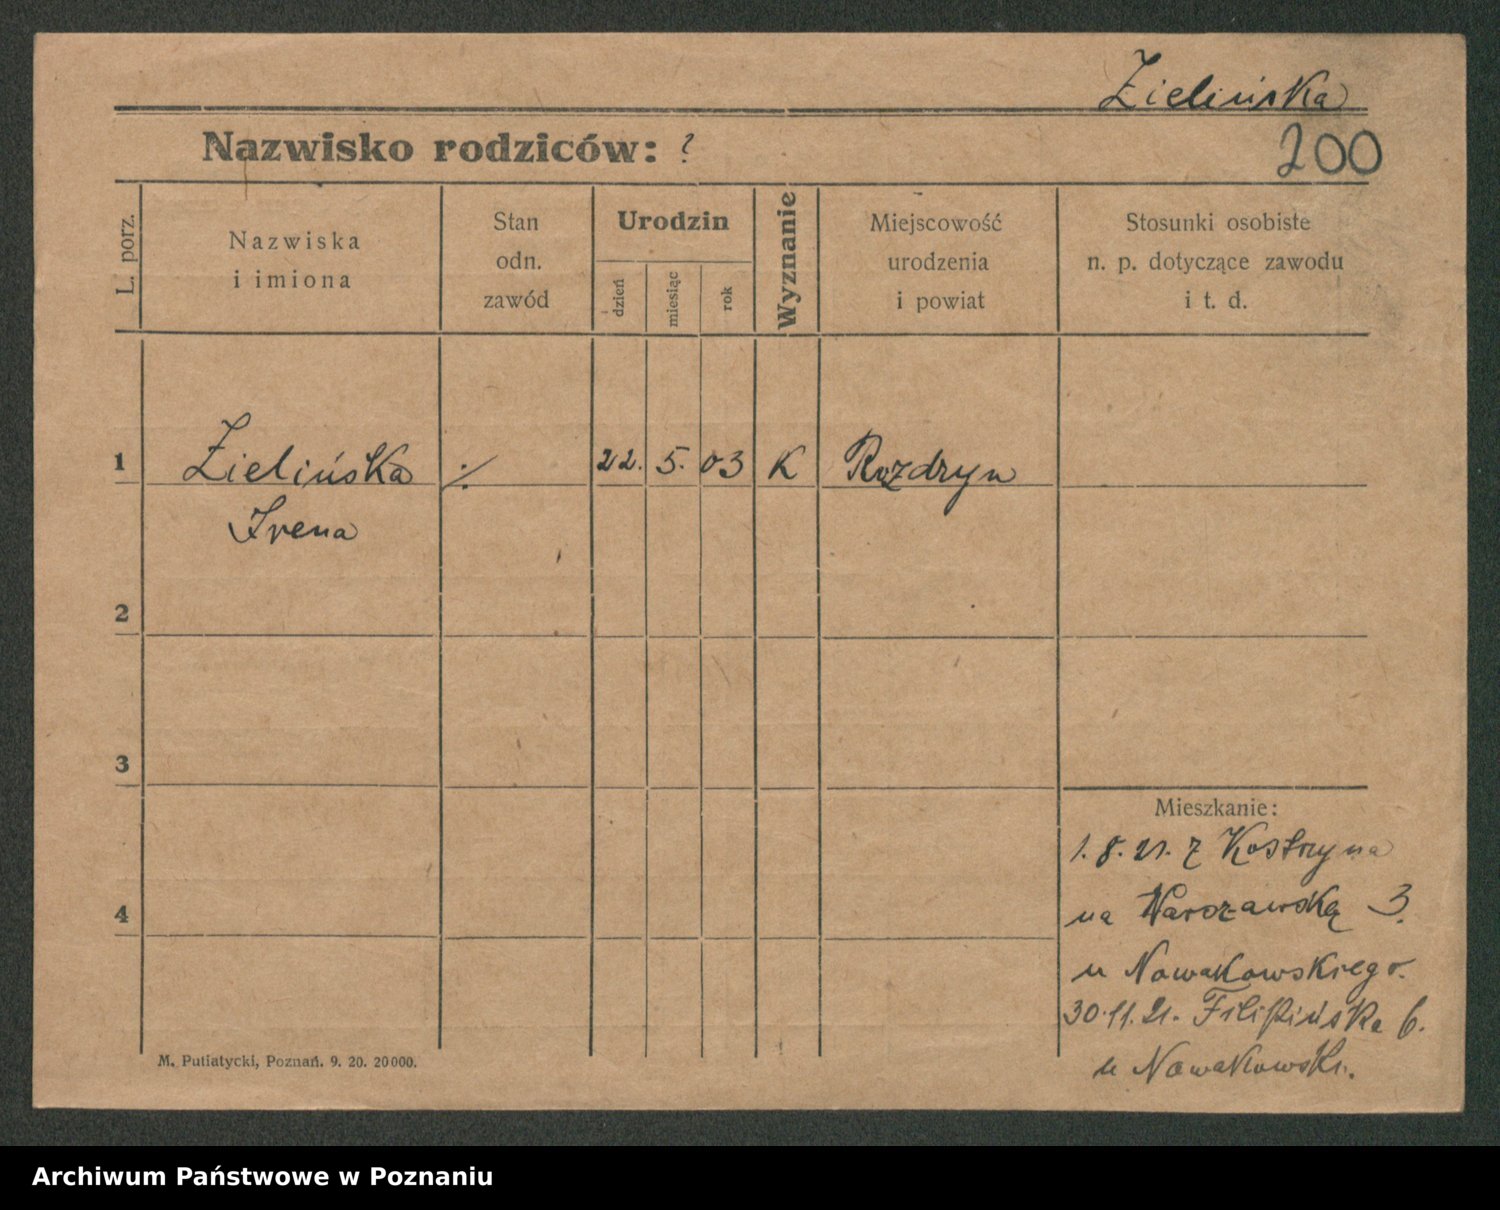 Zielińska
Nazwisko rodziców: ?
200
L. porz.
Nazwiska
i imiona
Stan
odn.
zawód
Urodzin
dzień
miesiąc
rok
Wyznanie
Miejscowość
urodzenia
i powiat
Stosunki osobiste
n. p. dotyczące zawodu
i t. d.
1 Zielińska ./. 22. 5. 03 K Rozdryn
Irena
2
3
4
Mieszkanie:
1. 8. 21. z Kostrzyna
na Warszawską 3.
u Nowakowskiego.
30.11.21. Filipińska 6.
u Nowakowski.
M. Putiatycki, Poznań. 9. 20. 20000.
Archiwum Państwowe w Poznaniu